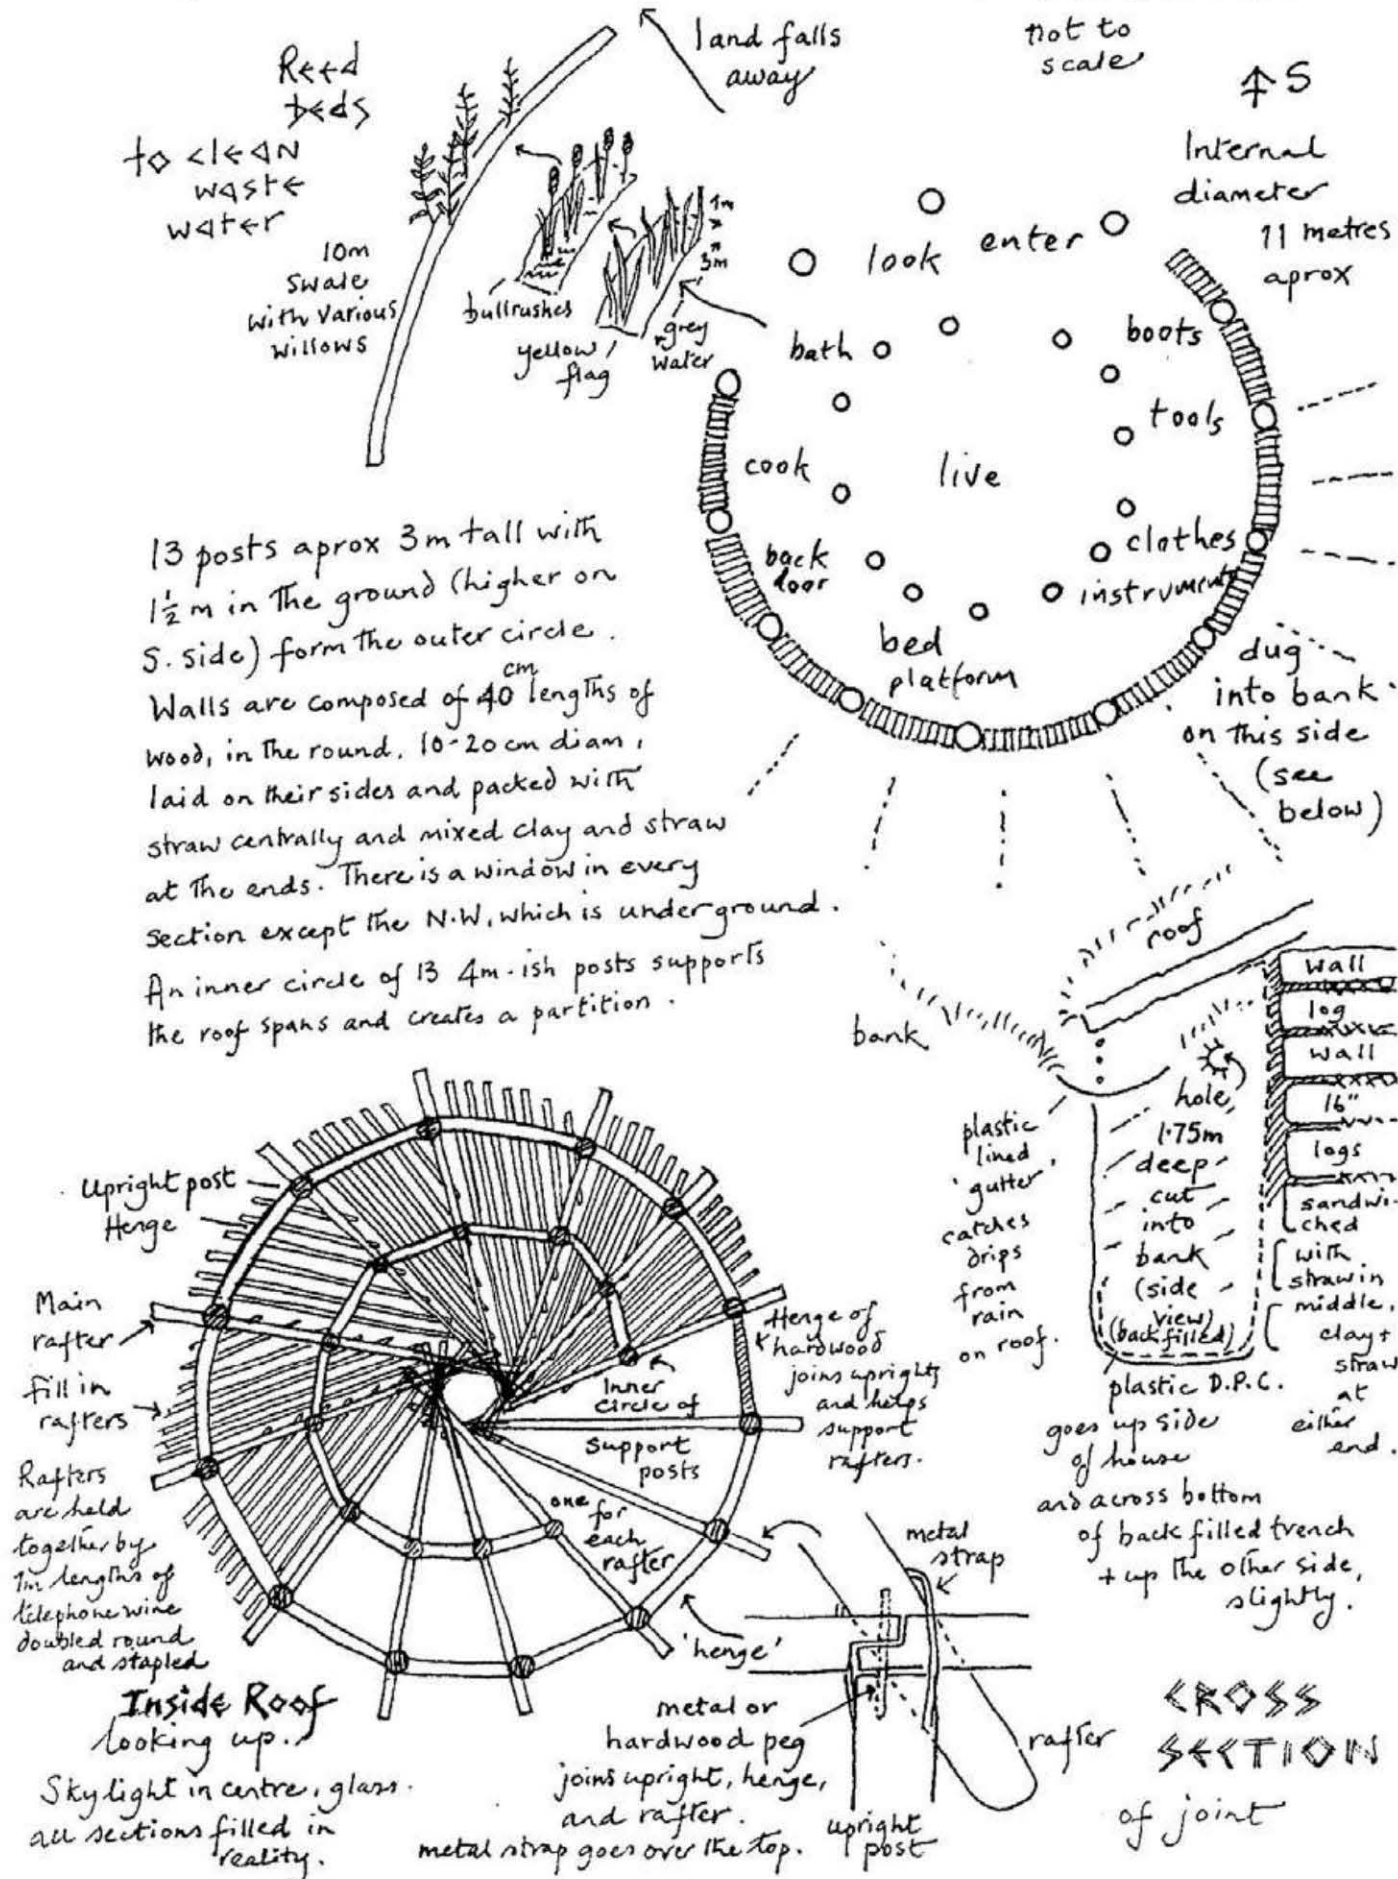 land falls
away
not to
scale
S
Reed
beds
to clean
waste
water
10m
Swale
with various
willows
bullrushes
yellow
flag
grey
water
1m
3m
Internal
diameter
11 metres
aprox
look
enter
bath
boots
tools
cook
live
clothes
back
door
instruments
bed
platform
dug
into bank
on this side
(see
below)
13 posts aprox 3m tall with
1½ m in the ground (higher on
S. side) form the outer circle.
Walls are composed of 40 cm lengths of
wood, in the round, 10-20 cm diam,
laid on their sides and packed with
straw centrally and mixed clay and straw
at the ends. There is a window in every
section except the N.W, which is underground.
An inner circle of 13 4m-ish posts supports
the roof spans and creates a partition.
roof
bank
wall
log
wall
16"
logs
sandwi-
ched
with
straw in
middle,
clay +
straw
at
either
end.
hole,
1.75m
deep
cut
into
bank
(side
view)
(back filled)
plastic
lined
'gutter'
catches
drips
from
rain
on roof.
plastic D.P.C.
goes up side
of house
and across bottom
of back filled trench
+ up the other side,
slightly.
Upright post
Henge
Main
rafter
fill in
rafters
Rafters
are held
together by
1m lengths of
telephone wire
doubled round
and stapled
Henge of
hardwood
joins uprights
and helps
support
rafters.
Inner
circle of
support
posts
one
for
each
rafter
'henge'
Inside Roof
looking up.
Skylight in centre, glass.
all sections filled in
reality.
metal
strap
metal or
hardwood peg
joins upright, henge,
and rafter.
metal strap goes over the top.
upright
post
rafter
CROSS
SECTION
of joint